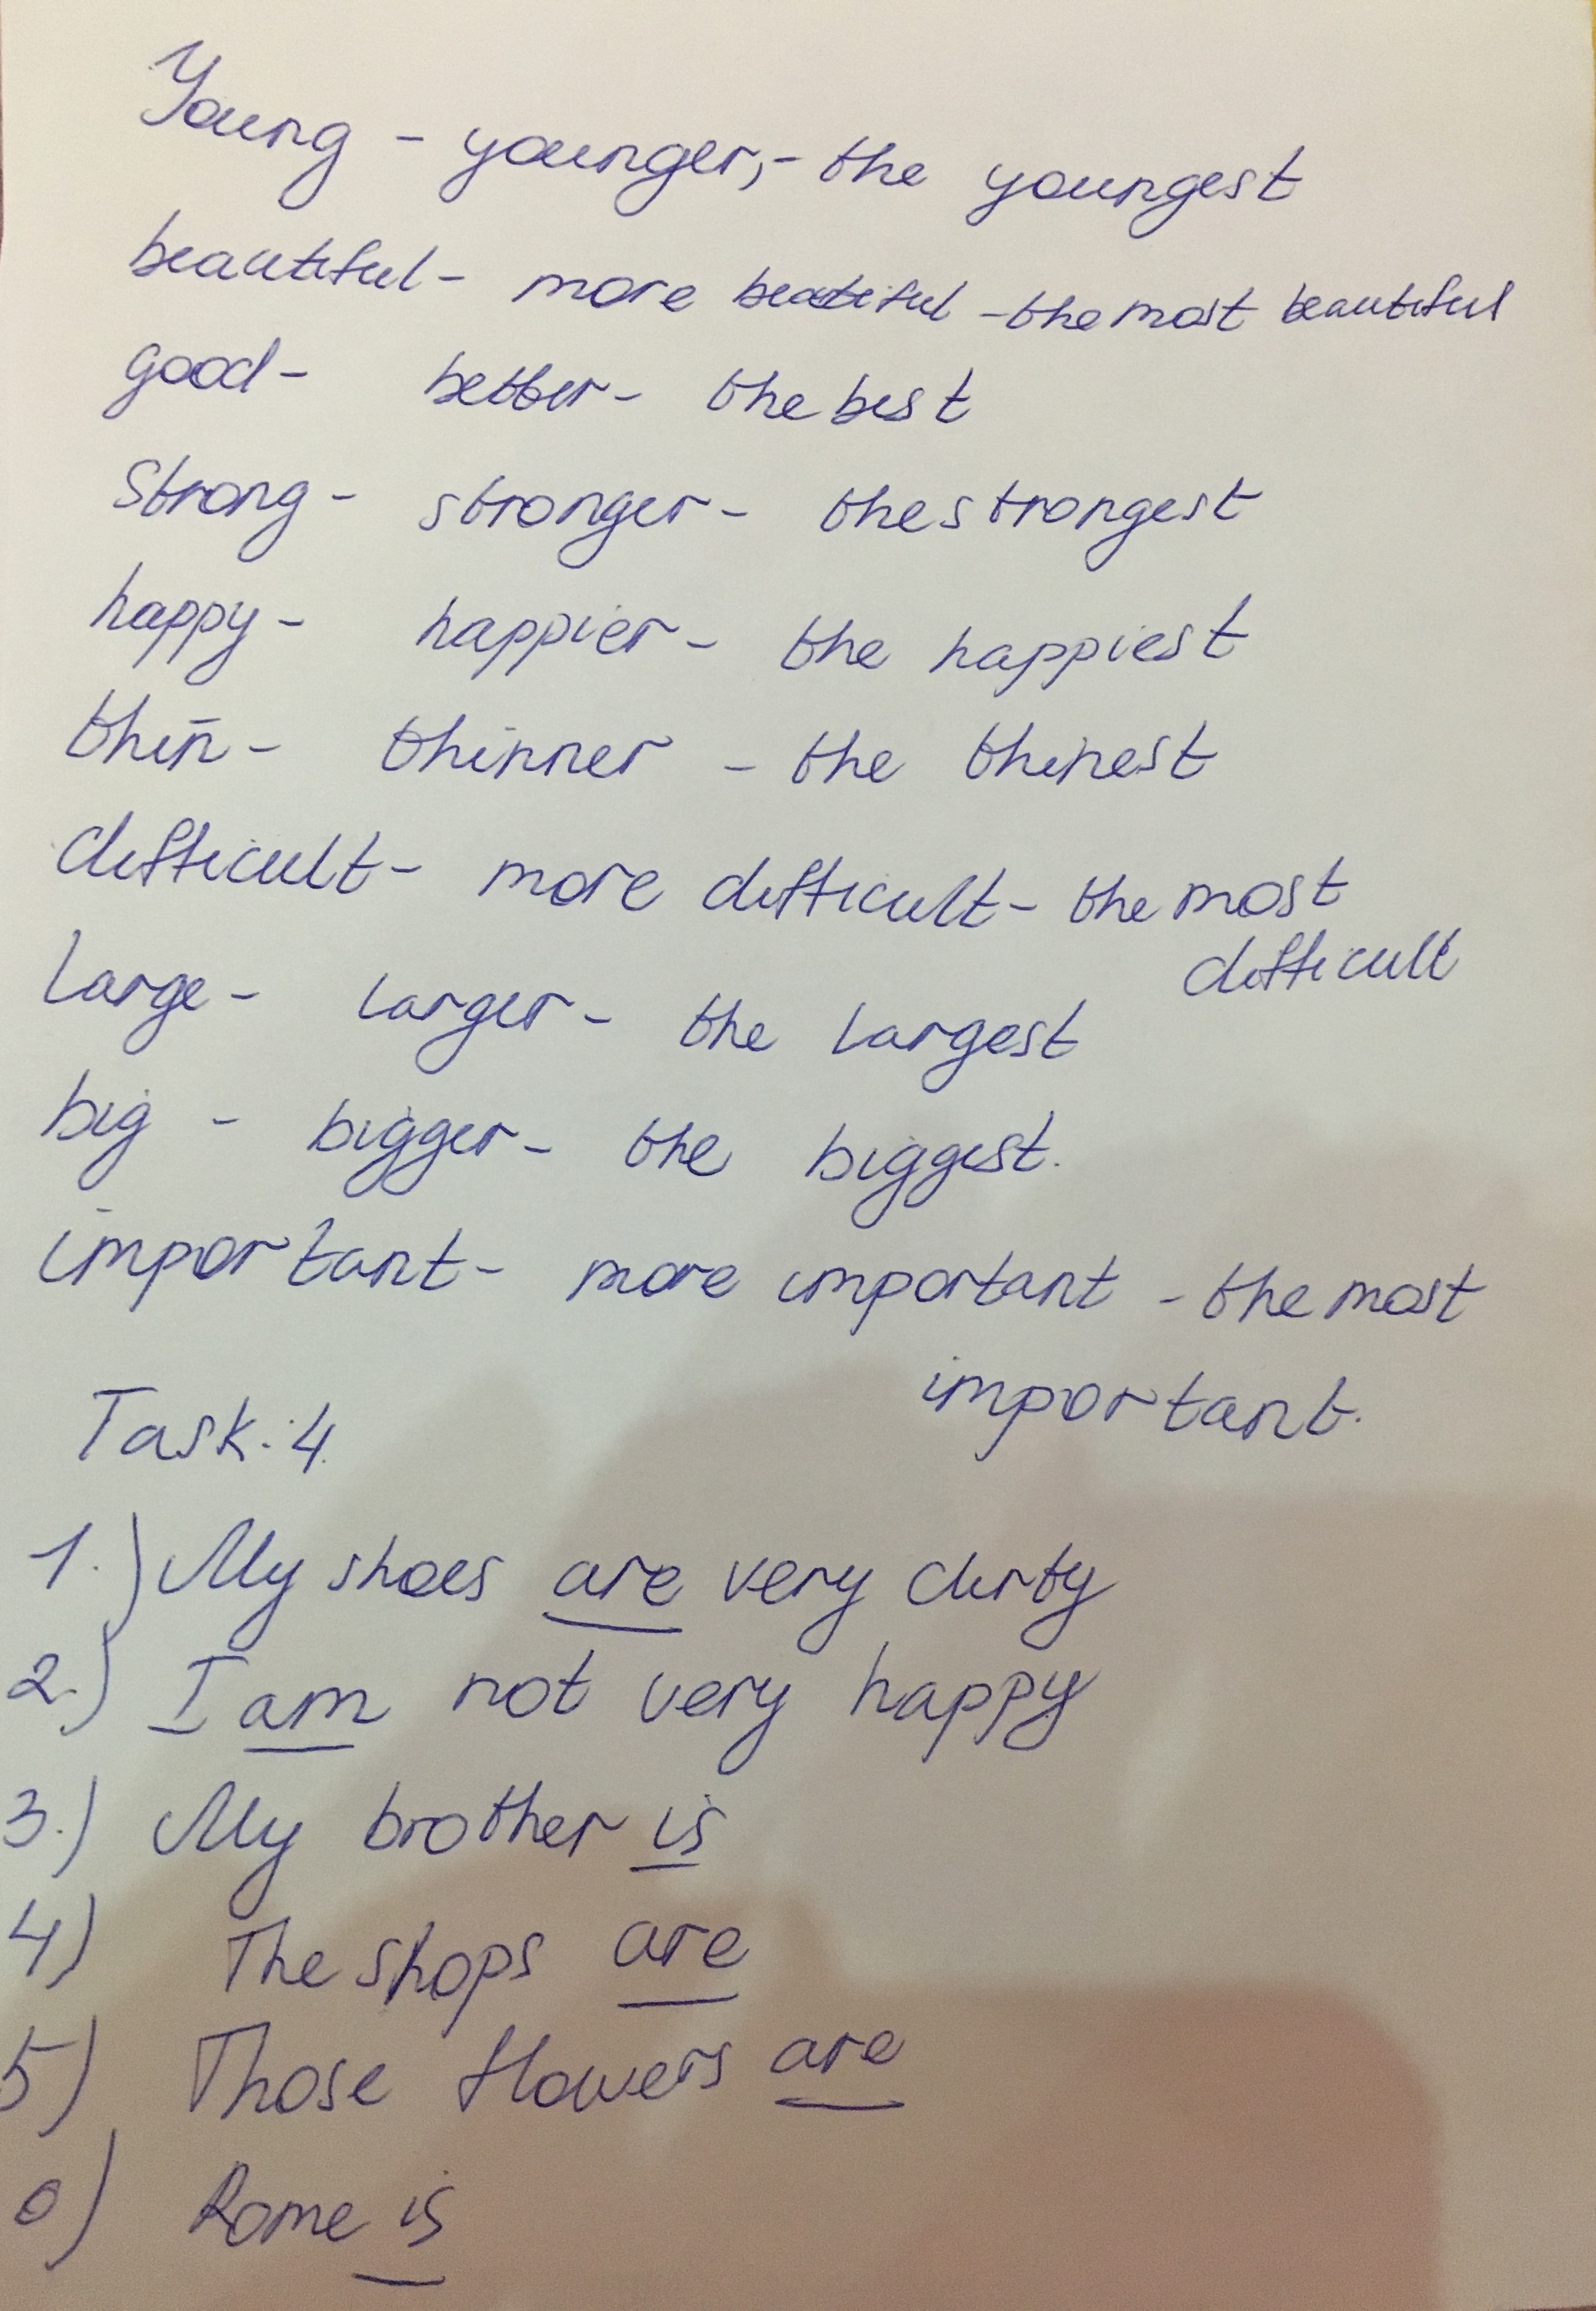 Young - younger, - the youngest
beautiful - more beatiful - the most beautiful
good - better - the best
Strong - stronger - the strongest
happy - happier - the happiest
thin - thinner - the thinest
difficult - more difficult - the most
difficult
Large - larger - the largest
big - bigger - the biggest.
important - more important - the most
important.
Task: 4.
1.) My shoes are very dirty
2.) I am not very happy
3.) My brother is
4) The shops are
5) Those flowers are
6) Rome is